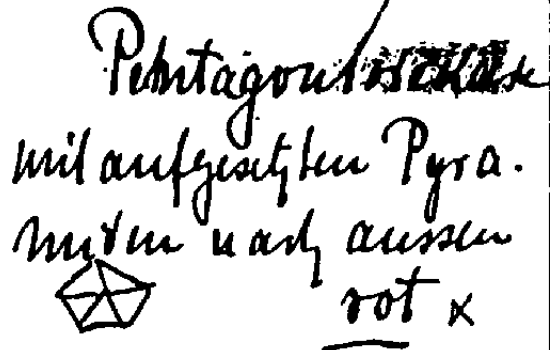 Pentagon
mit aufgesetzten Pyra.
miden nach aussen
rot x